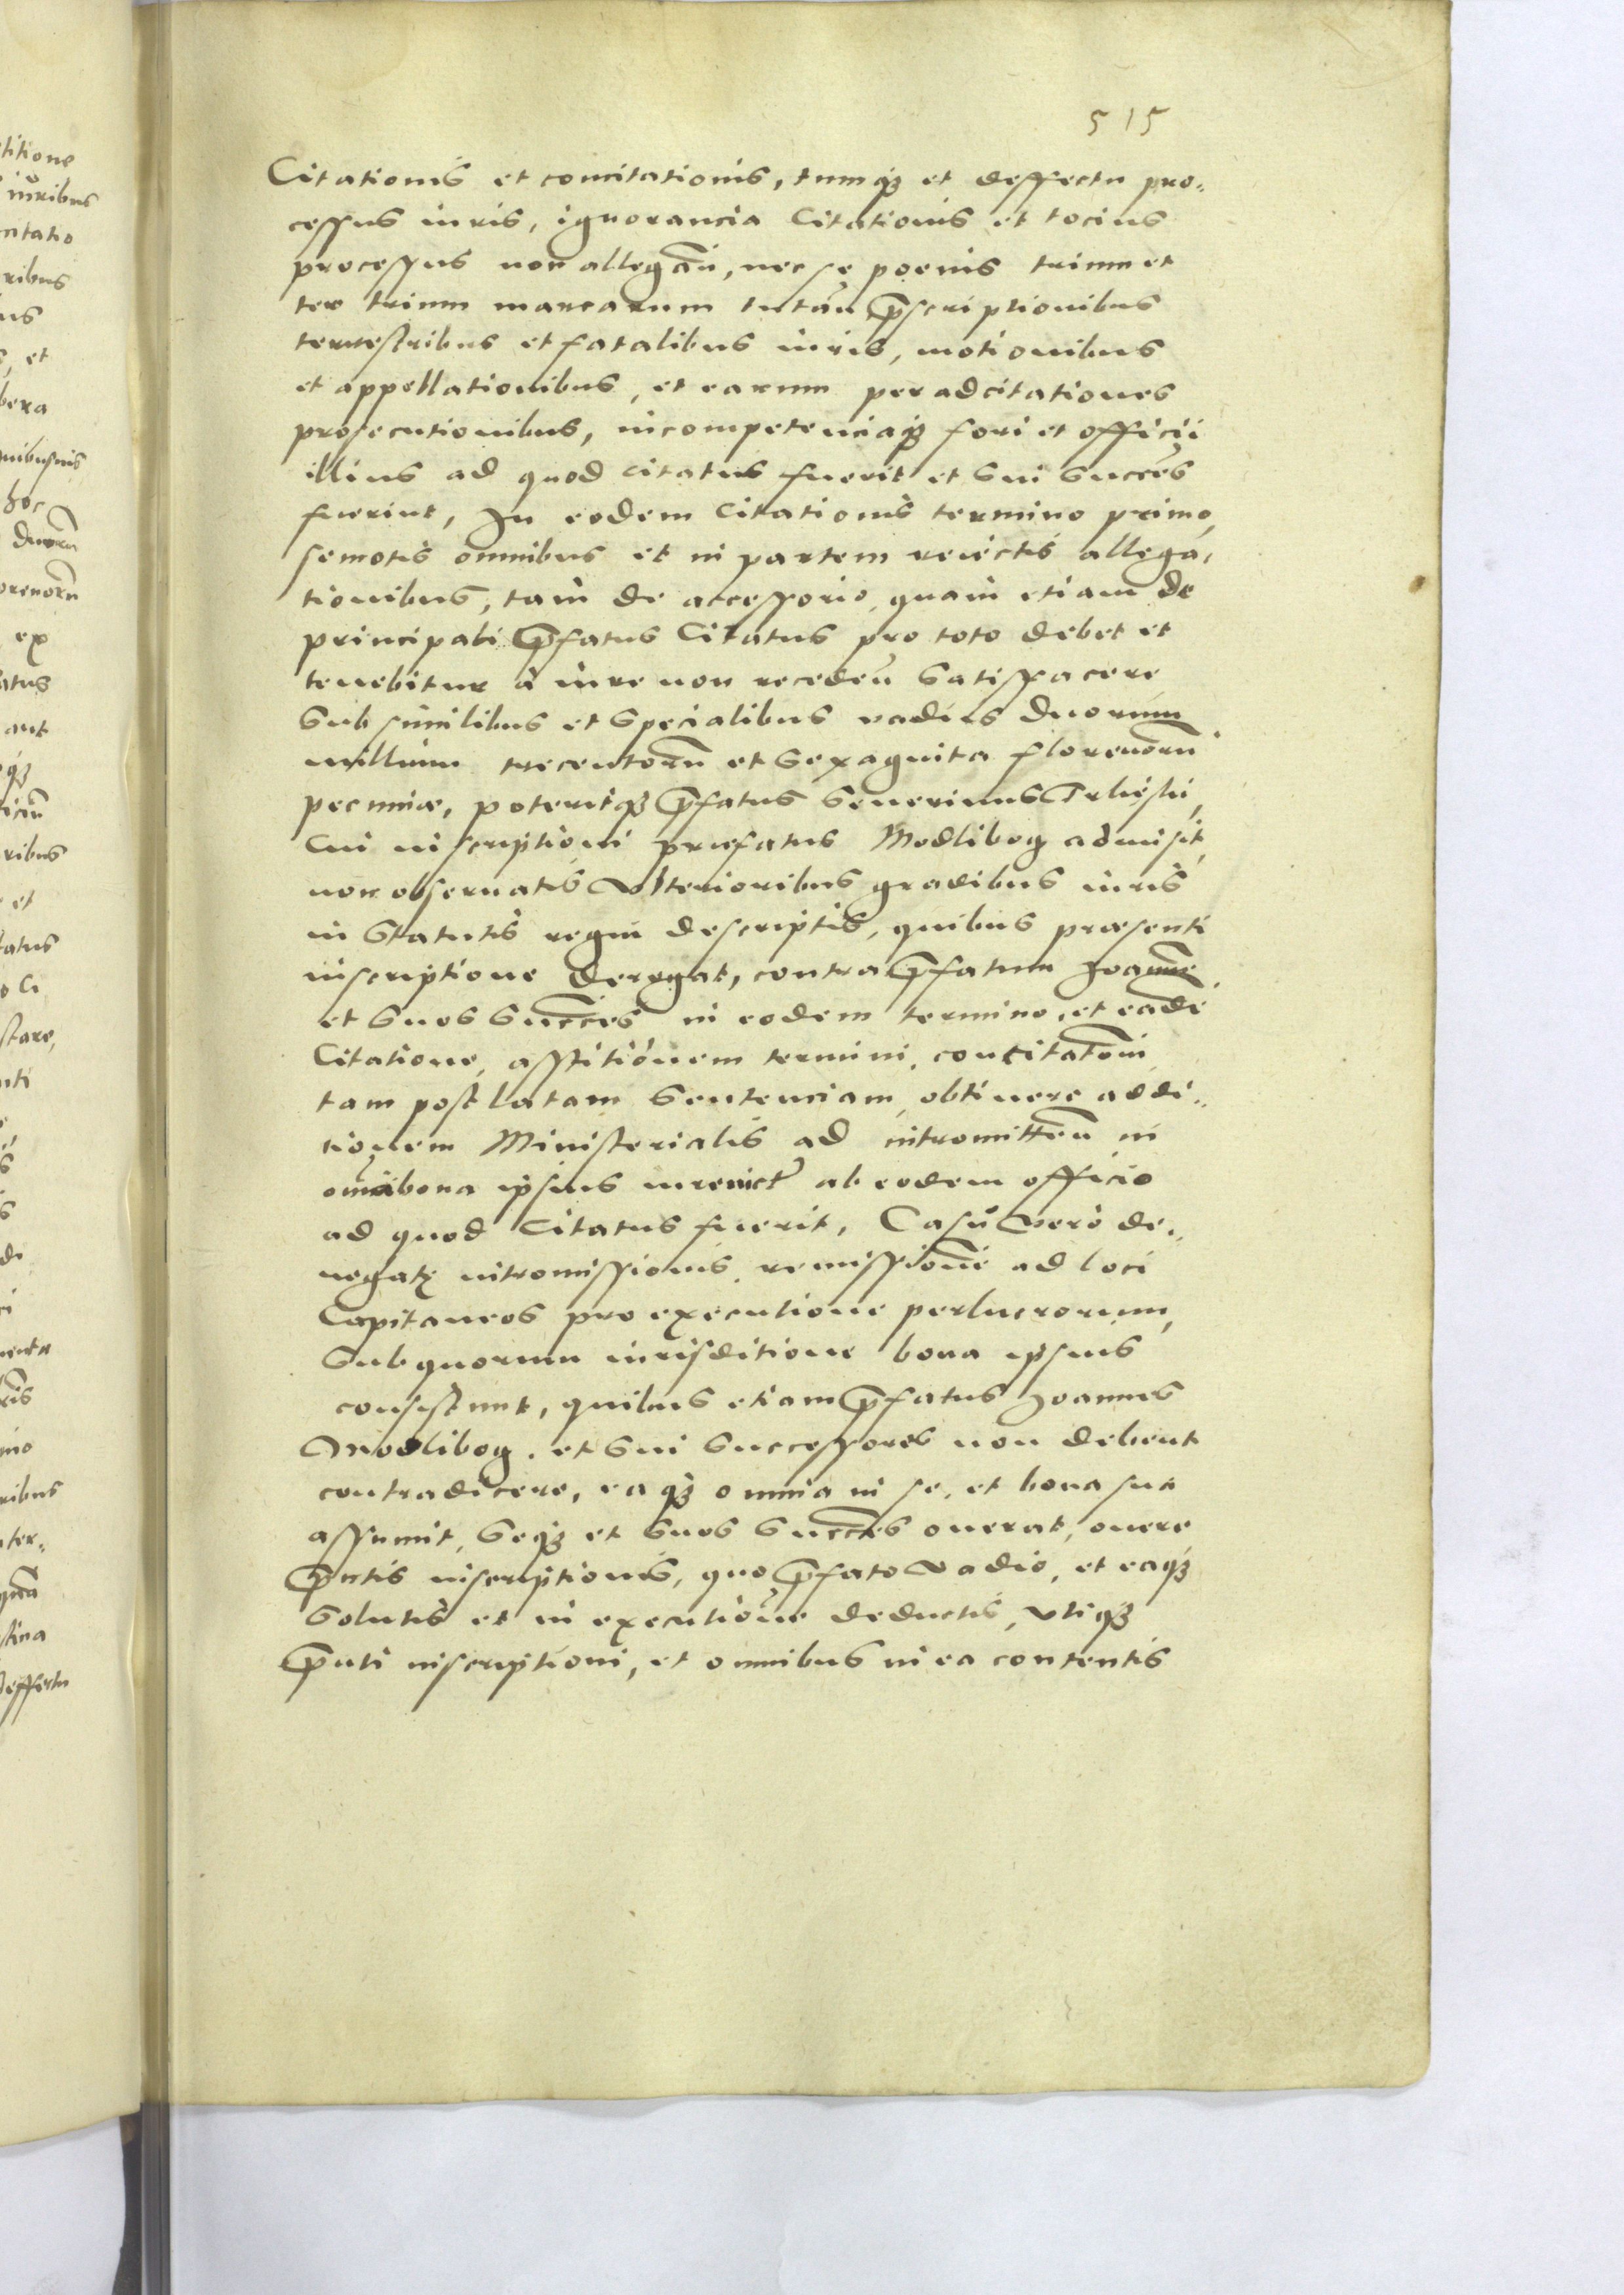 515
Citationis et concitationis, tumq3 et deffectu pro,
cessus iuris, ignorancia Citationis et tocius
processus non allegan̄, nec se poenis trium et
ter trium marcarum tutan̄ p̄scriptionibus
terrestribus et fatalibus iuris, motionibus
et appellationibus, et earum per adcitationes
prosecutionibus, incompetenciaq3 fori et officii
illius ad quod citatus fuerit et sui Succēs
fuerint, In eodem Citationis termino primo,
semotis omnibus et in partem reiectis allega,
tionibus, tam de accessorio, quam etiam de
principali p̄fatus Citatus pro toto debet et
tenebitur à iure non receden̄ Satisfacere
Sub similibus et Specialibus vadiis duorum
millium trecentorū et Sexaginta florenorū
pecuniæ, poteritq3 p̄fatus Seuerinus
Cui inscriptioni præfatus Modlibog admisit,
non obseruatis Vlterioribus gradibus iuris
in Statutis regni descriptis, quibus præsenti
inscriptione derogat, contra p̄fatum Joannē
et Suos Succēs in eodem termino, et eadē
Citatione, astitionem termini, concitatōni
tam post latam Sentenciam, obtinere addi,,
tionem Ministerialis ad intromitten̄ in
omīa bona ipsius iureuict̄ ab eodem officio
ad quod Citatus fuerit, Casu vero de,,
negatę intromissionis, remissionē ad loci
Capitaneos pro executione perlucrorum,
Sub quorum iurisditione bona ipsius
consistunt, quibus etiam p̄fatus Joannes
Modlibog, et Sui Successores non debent
contradicere, eaq3 omnia in se, et bona sua
assumit, Seq3 et Suos Succēs onerat, onere
p̄ntis inscriptionis, quo p̄fato Vadio, et eaq3
Solutis et in executione deductis, vtiq3
p̄nti inscriptioni, et omnibus in ea contentis